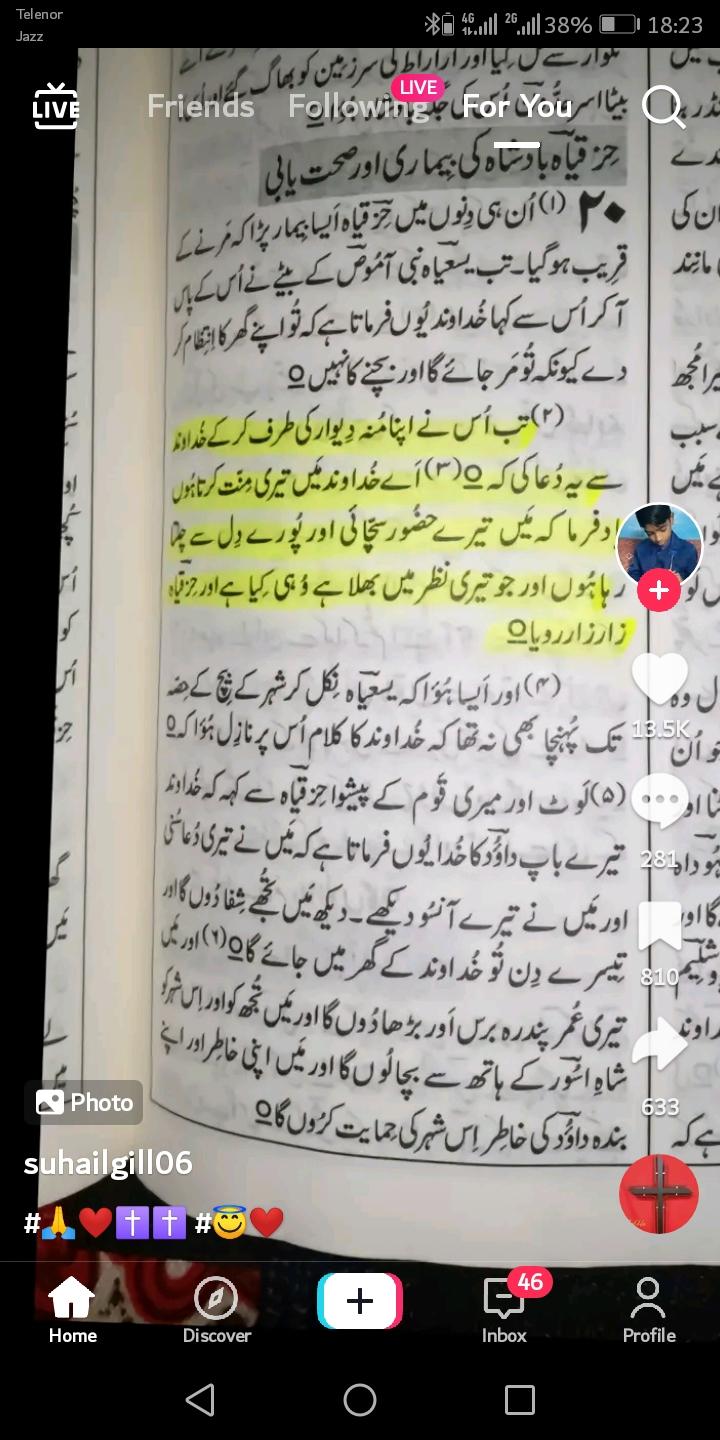 Telenor
Jazz
4G
2G
38%
18:23
LIVE
Friends
Following
LIVE
For You
حِزقیاہ بادشاہ کی بیماری اور صحت یابی
۲۰ (۱) اُن ہی دِنوں میں حِزقیاہ اَیسا بیمار پڑا کہ مَرنے کے
قرِیب ہو گیا۔ تب یسعیاہ نبی آموص کے بیٹے نے اُس کے پاس
آ کر اُس سے کہا خُداوند یُوں فرماتا ہے کہ تُو اپنے گھر کا اِنتِظام کر
دے کیونکہ تُو مَر جائے گا اور بچنے کا نہیں ○
(۲) تب اُس نے اپنا مُنہ دِیوار کی طرف کر کے خُداوند
سے یہ دُعا کی کہ ○ (۳) اَے خُداوند مَیں تیری مِنّت کرتا ہُوں
یاد فرما کہ مَیں تیرے حضُور سچّائی اور پُورے دِل سے چلتا
رہا ہُوں اور جو تیری نظر میں بھلا ہے وُہی کِیا ہے اور حِزقیاہ
زار زار رویا ○
(۴) اور اَیسا ہُؤا کہ یسعیاہ نِکل کر شہر کے بِیچ کے حِصّہ
تک پُہنچا بھی نہ تھا کہ خُداوند کا کلام اُس پر نازِل ہُؤا کہ ○
(۵) لَوٹ اور میری قَوم کے پیشوا حِزقیاہ سے کہہ کہ خُداوند
تیرے باپ داؤُد کا خُدا یُوں فرماتا ہے کہ مَیں نے تیری دُعا سُنی
اور مَیں نے تیرے آنسُو دیکھے۔ دیکھ مَیں تُجھے شِفا دُوں گا اور
تِیسرے دِن تُو خُداوند کے گھر میں جائے گا ○ (۶) اور مَیں
تیری عُمر پندرہ برس اَور بڑھا دُوں گا اور مَیں تُجھ کو اور اِس شہر کو
شاہِ اسُور کے ہاتھ سے بچا لُوں گا اور مَیں اپنی خاطِر اور اپنے
بندہ داؤُد کی خاطِر اِس شہر کی حِمایت کرُوں گا ○
13.5K
281
810
633
Photo
suhailgill06
#🙏❤️✝️✝️ #😇❤️
Home
Discover
46
Inbox
Profile